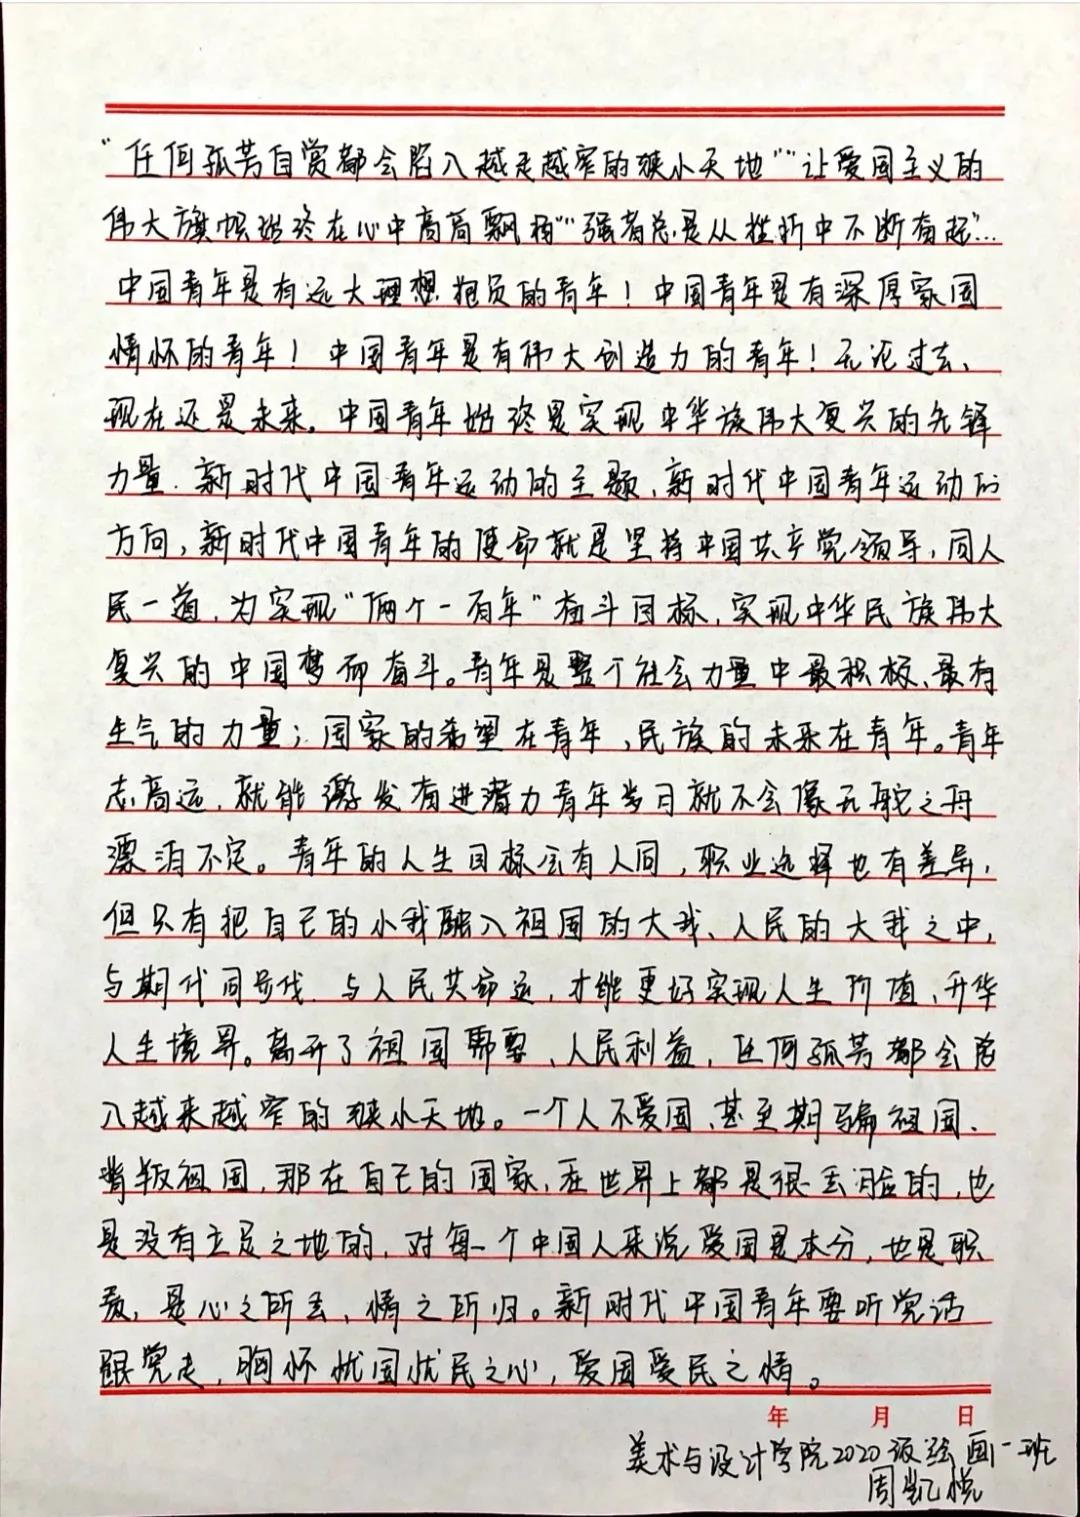 “任何孤芳自赏都会陷入越走越窄的狭小天地”“让爱国主义的
伟大旗帜始终在心中高高飘扬”“强者总是从挫折中不断奋起”…
中国青年是有远大理想抱负的青年！中国青年是有深厚家国
情怀的青年！中国青年是有伟大创造力的青年！无论过去、
现在还是未来。中国青年始终是实现中华族伟大复兴的先锋
力量.新时代中国青年运动的主题、新时代中国青年运动的
方向，新时代中国青年的使命就是坚持中国共产党领导，同人
民一道，为实现“俩个一百年”奋斗目标，实现中华民族伟大
复兴的中国梦而奋斗。青年是整个社会力量中最积极、最有
生气的力量；国家的希望在青年，民族的未来在青年。青年
志高远，就能激发奋进潜力青年岁月就不会像无舵之舟
漂泊不定。青年的人生目标会有人同，职业选择也有差异，
但只有把自己的小我融入祖国的大我、人民的大我之中，
与期代同步伐.与人民共命运，才能更好实现人生价值，升华
人生境界。离开了祖国需要、人民利益，任何孤芳都会陷
入越来越窄的狭小天地。一个人不爱国、甚至期骗祖国、
背叛祖国，那在自己的国家、在世界上都是很丢脸的，也
是没有立足之地的，对每一个中国人来说爱国是本分，也是职
责，是心之所系、情之所归。新时代中国青年要听党话
跟党走，胸怀忧国忧民之心，爱国爱民之情。
年 月 日
美术与设计学院2020级绘画一班
周凯悦